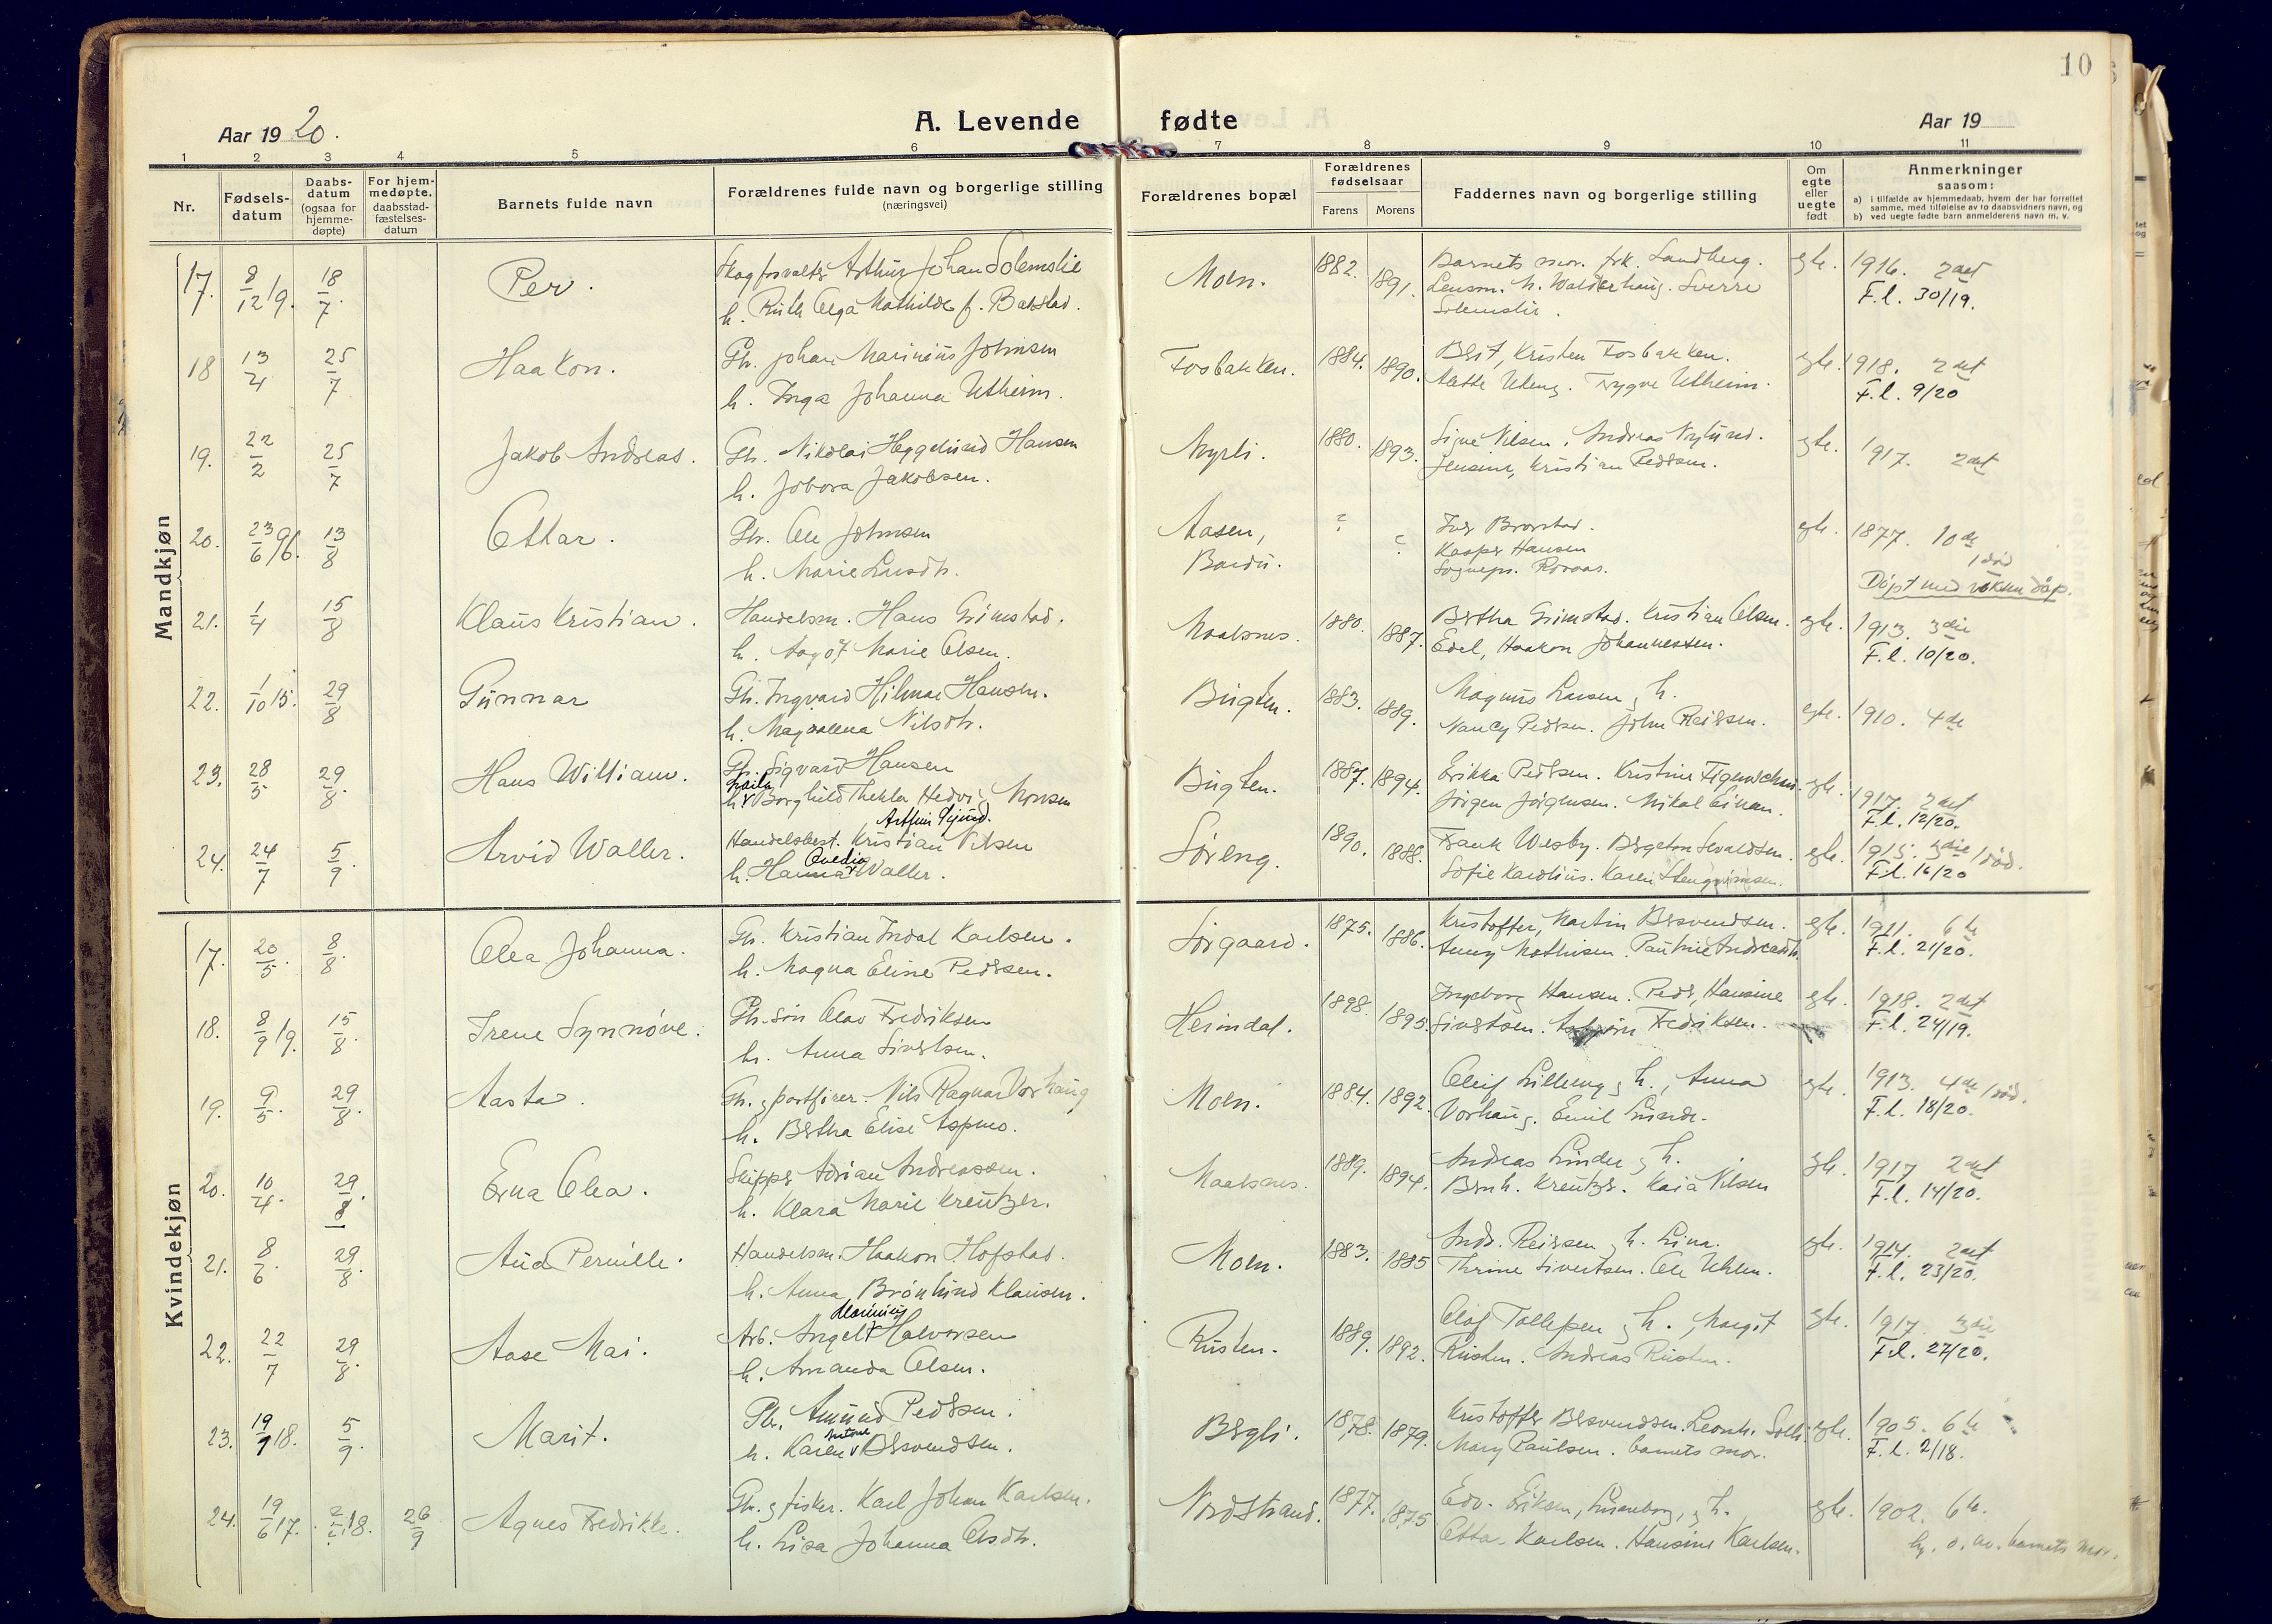 10
Aar 1920.
A. Levende fødte
Aar 19
1 2 3 4 5 6 7 8 9 10 11
Nr.
Fødsels-
datum
Daabs-
datum
(ogsaa for
hjemme-
døpte)
For hjem-
medøpte,
daabsstad-
fæstelses-
datum
Barnets fulde navn
Forældrenes fulde navn og borgerlige stilling
(næringsvei)
Forældrenes bopæl
Forældrenes
fødselsaar
Farens Morens
Faddernes navn og borgerlige stilling
Om
egte
eller
uegte
født
Anmerkninger
saasom:
a) i tilfælde av hjemmedaab, hvem der har forrettet
samme, med tilføielse av to daabsvidners navn, og
b) ved uegte fødte barn anmelderens navn m. v.
Mandkjøn
17. 8/12 19. 18/7. Per. Skogforvalter Arthur Johan Solemslie Moen. 1882. Barnets mor. frk. Sandberg. egte. 1916. 2det
h. Ruth Olga Mathilde f. Bakstad. 1891. Lensm. N. Walderhaug. Sverre F.l. 30/19.
Solemslie.
18 13/4 25/7 Haakon. Gbr. Johan Marinius Johnsen Fosbakken. 1884. Berit, Kristen Fosbakken. egte. 1918. 2det
h. Inga Johanna Utheim. 1890. Trygve Utheim. F.l. 9/20
19. 22/2 25/7 Jakob Andreas. Gbr. Nikolai Heggelund Hansen Myrli. 1880. Signe Nilsen, Andreas Nylund. egte. 1917. 2det
h. Jakobsen. 1893. Jensine, Kristian Pedersen.
20. 23/6 96. 13/8 Ottar. Gbr. Ole Johnsen Aasen, ? Iver Brorstad. egte. 1877. 10de
h. Marie Larsdtr. Bardu. ? Kasper Hansen 1 død
Sognepr. Døpt med voksen dåp.
21. 1/4 15/8 Klaus Kristian. Handelsm. Hans Grimstad. Maalsnes. 1880. Bertha Grimstad. Kristian Olsen. egte. 1913. 3die
h. Aagot Marie Olsen. 1887. Edel, Haakon Johannessen. F.l. 10/20.
22. 1/10 15. 29/8 Gunnar Gbr. Ingvard Hilmar Hansen. Bugten. 1883. Magnus Larsen og h. egte. 1910. 4de
h. Magdalena Nilsdtr. 1889. Nancy Pedersen. John Reiersen.
23. 28/5 29/8. Hans William. Gbr. Sigvard Hansen Bugten. 1887. 1894. Erikka Pedersen. Kristine egte. 1917. 2det
Laila
h. Borghild Thekla Hedvig Monsen Jørgen Jørgensen. Mikal Einan. F.l. 12/20.
Arthur
24. 24/7 5/9 Arvid Waller. Handelsbest. Kristian Nilsen Søreng. 1890. Frank Wesby. Bergeton Sevaldsen. egte. 1915. 3die 1 død.
Ovedia
h. Hanna Waller. 1888. Sofie Karolius. Karen F.l. 16/20
Kvindekjøn
17. 20/5. 8/8. Olea Johanna. Gbr. Kristian Indal Karlsen. Sørgaard. 1875. Kristoffer, Martin Bersvendsen. egte. 1911. 6te
h. Magna Eline Pedersen. 1886. Anny Mathisen. Pauline Andreasdtr. F.l. 21/20.
18. 8/9 19. 15/8. Irene Synnøve. Gbr. søn Olav Fredriksen Heimdal. 1898. Ingeborg Hansen. Peder, Hansine egte. 1918. 2det
h. Anna Sivertsen. 1895. Sivertsen. Asbjørn Fredriksen. F.l. 24/19.
19. 9/5. 29/8. Aasta. Gbr. og postfører. Nils Ragnar Vorhaug Moen. 1884. 1892. Oleif Lilleng og h., Anna egte. 1913. 4de 1 død.
h. Bertha Elise Aspmo. Vorhaug. Emil Lunde. F.l. 18/20.
20. 10/4. 29/8. Erna Olea. Skipper Adrian Andreassen. Maalsnes. 1889. Andreas Linder og h. egte. 1917 2det
h. Klara Marie Kreutzer. 1894. Bernh. Kreutzer. Kaia Nilsen F.l. 14/20.
21. 8/6. 29/8. Aud Pernille. Handelsm. Haakon Hofstad. Moen. 1883. Andr. Reiersen og h. Lina. egte. 1914. 2det
h. Anna Brønlund Klausen. 1885 Thrine Sivertsen. Ole Uhlen. F.l. 23/20.
Henning
22. 22/7 29/8. Aase Mai. Arb. Angel Halvorsen Rusten. 1889. Olaf Tollefsen og h., Margit egte. 1917 3die
h. Amanda Olsen. 1892. Rusten. Andreas Rusten. F.l. 27/20.
23. 19/9 18. 5/9. Marit. Gbr. Amund Pedersen. Bergli. 1878. Kristoffer Bersvendsen. Leonh. Solli. egte. 1905. 6te
Antone
h. Karen Bersvendsen. 1879. Mary Paulsen. barnets mor. F.l. 2/18.
24. 19/6 17. 18. 26/9 Agnes Fredrikke. Gbr. og fisker. Karl Johan Karlsen. Nordstrand. 1877. Edv. Eriksen, og h. egte. 1902. 6te.
h. Lisa Johanna Olsdtr. 1875 Otta Karlsen. Hansine Karlsen. hj. d. av. barnets mor.